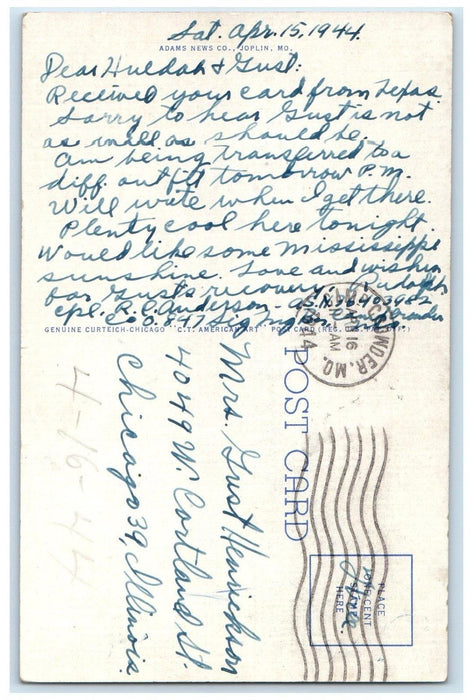 Sat. Apr. 15, 1944.
ADAMS NEWS CO., JOPLIN, MO.
Dear Huldah & Gust:
Received your card from Texas.
Sorry to hear Gust is not
as well as should be.
Am being transferred to a
diff. outfit tomorrow P.M.
Will write when I get there.
Plenty cool here tonight
Would like some Mississippi
sunshine. Love and wishes
for Gust's recovery. Rudolph
cpl. R. C. Anderson - A.S.N. 36403982
Co. D. 47 Sig.
GENUINE CURTEICH-CHICAGO "C.T. AMERICAN ART" POST CARD (REG. U.S. PAT. OFF.)
CROWDER, MO.
APR 16
AM
1944
POST CARD
PLACE
ONE CENT
STAMP
HERE
Free.
Mrs. Gust Henrickson
4049 W. Cortland St.
Chicago 39, Illinois.
4-16-44